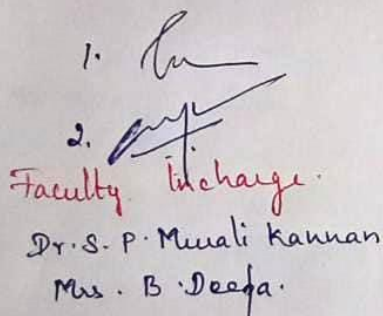 1.
2.
Faculty Incharge.
Dr. S. P. Murali Kannan
Mrs. B. Deepa.